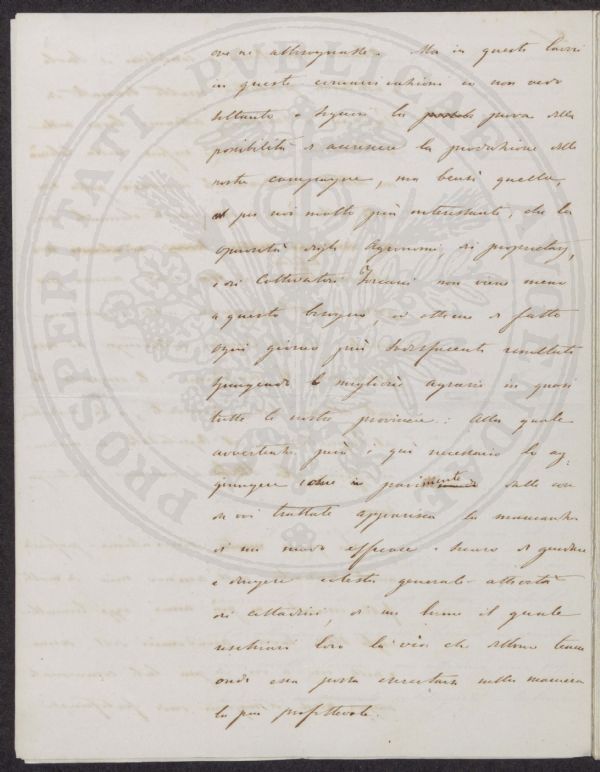 ove ne abbisognasse. Ma in questi lavori
in queste comunicazioni io non vedo
soltanto e seguire la prova della
possibilità d'accrescere la produzione delle
nostre campagne, ma bensì quella,
per noi molto più interessante, che la
operosità degli Agronomi, dei proprietarj,
e dei Coltivatori Toscani non viene meno
a questo bisogno, ed ottiene di fatto
ogni giorno più sodisfacenti resultati
spingendo le migliorie agrarie in quasi
tutte le nostre provincie: Alla quale
avvertenza però è qui necessario lo ag=
giungere come parimente dalle cose
da voi trattate apparisca la mancanza
di un modo efficace e sicuro di guidare
e dirigere cotesta generale attività
dei cittadini, di un lume il quale
rischiari loro la via che debbono tenere
onde essa possa esercitarsi nella maniera
la più profittevole.
PROSPERITATI PVBLICAE AVGENDAE